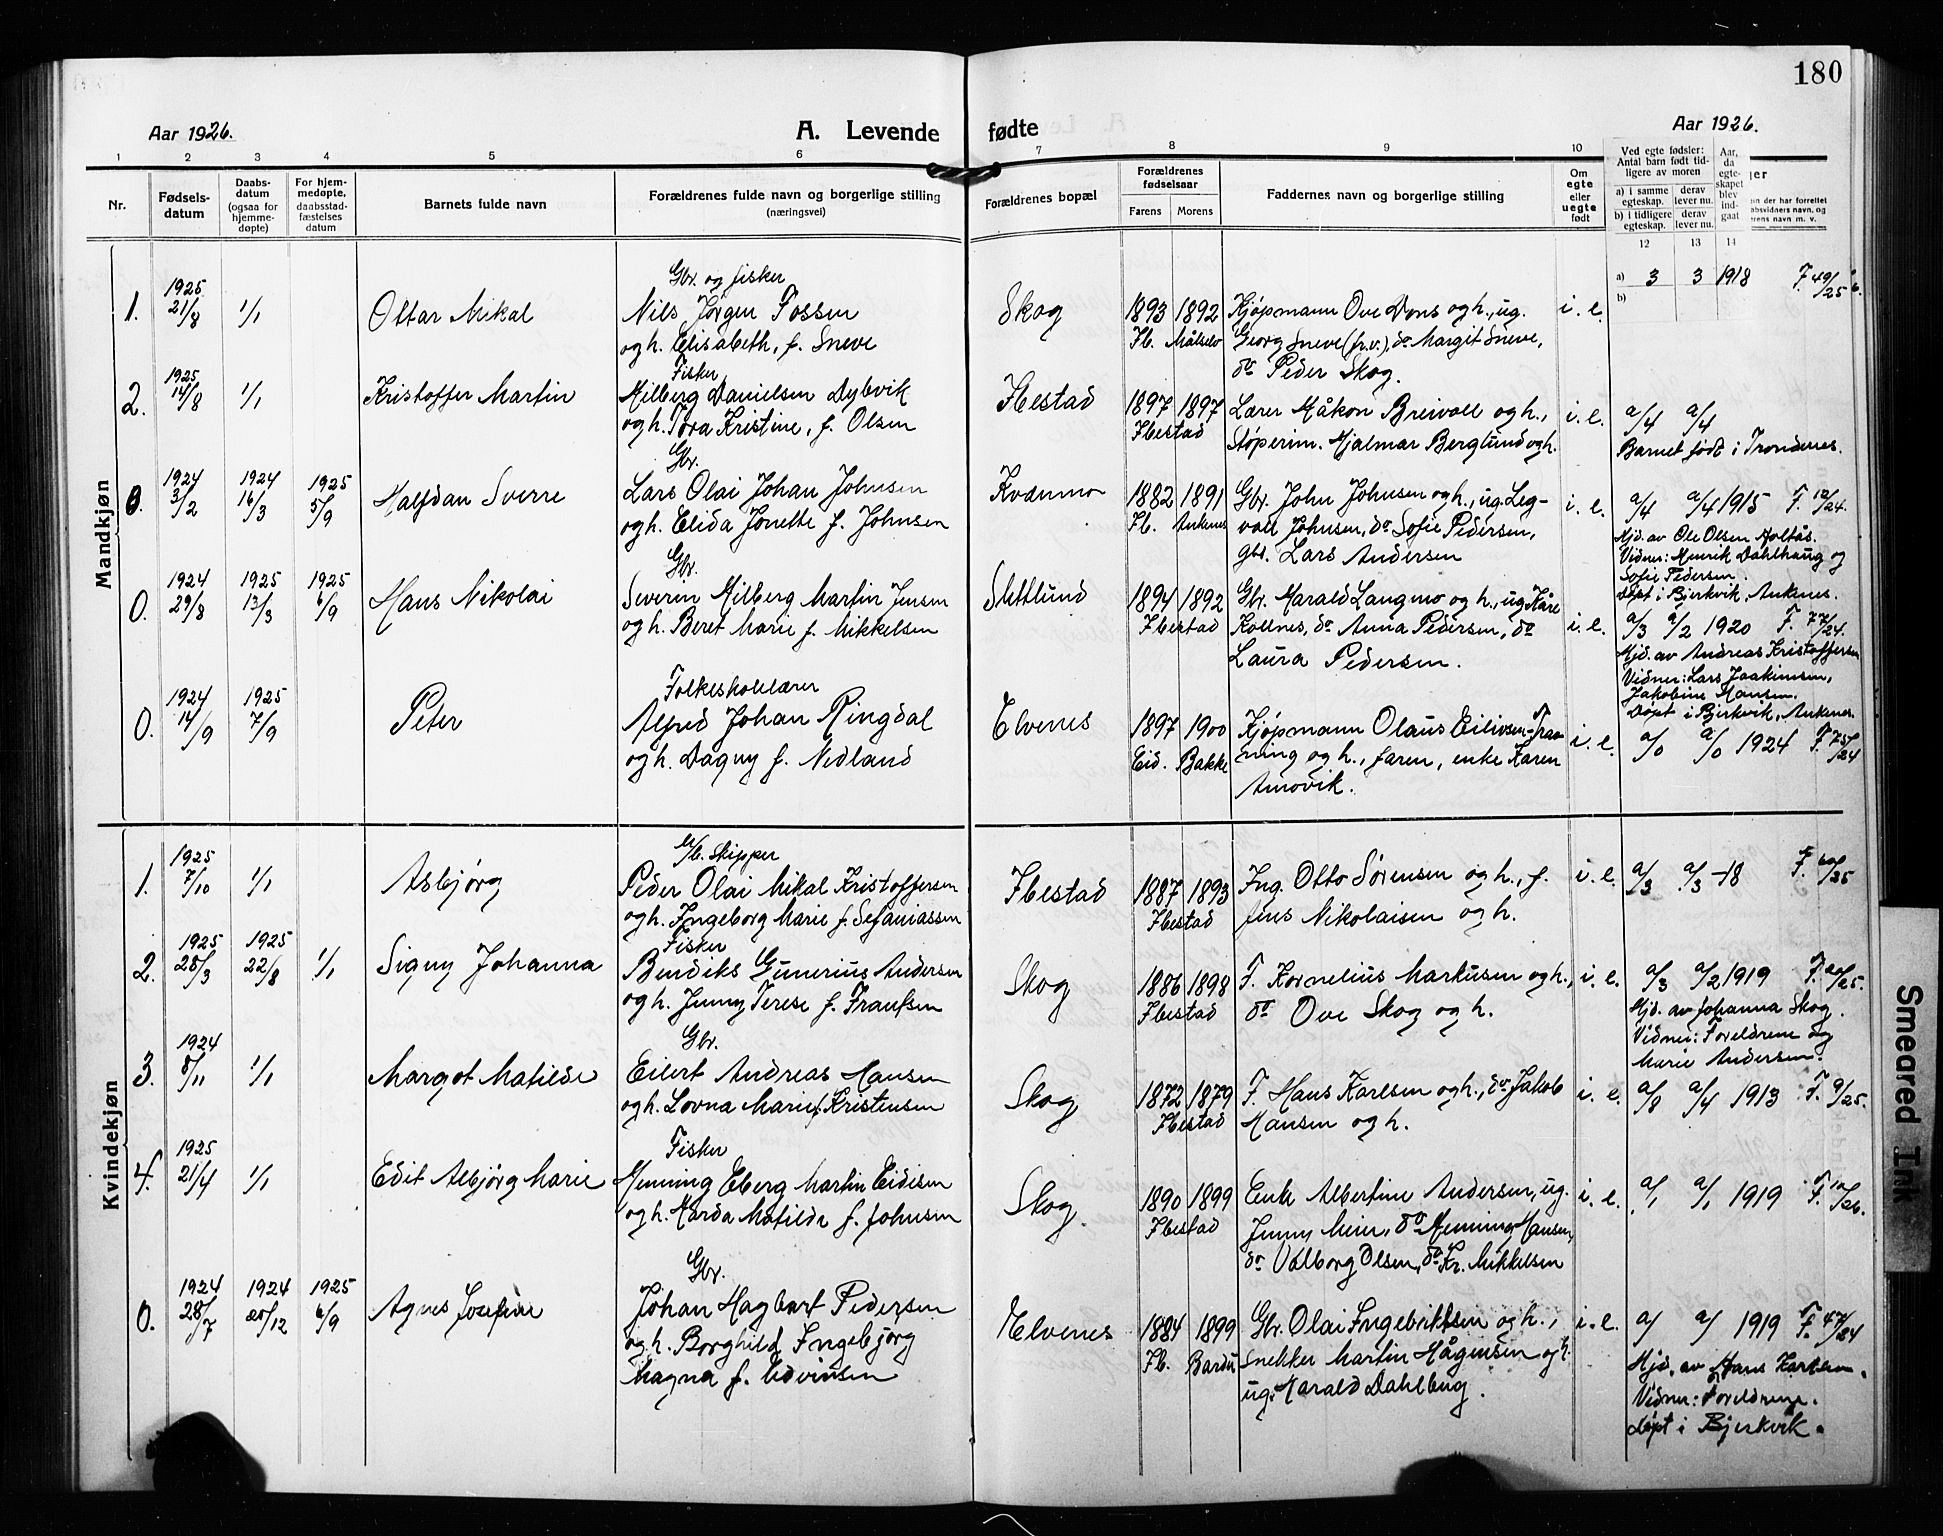 180
Aar 1926.
A. Levende fødte
Aar 1926.
1 2 3 4 5 6 7 8 9 10
Nr.
Fødsels-
datum
Daabs-
datum
(ogsaa for
hjemme-
døpte)
For hjem-
medøpte,
daabsstad-
fæstelses
datum
Barnets fulde navn
Forældrenes fulde navn og borgerlige stilling
(næringsvei)
Forældrenes bopæl
Forældrenes
fødselsaar
Farens Morens
Faddernes navn og borgerlige stilling
Om
egte
eller
uegte
født
Ved egte fødsler:
Antal barn født tid-
ligere av moren
a) i samme
egteskap.
derav
lever nu.
b) i tidligere
egteskap.
derav
lever nu.
Aar,
da
egte-
skapet
blev
ind-
gaat
12 13 14
Mandkjøn
1. 1925 21/8 1/1
Ottar Mikal
Gbr. og fisker
Nils Jörgen Fossen
og h. Elisabeth, f. Sneve
Skog
1893 1892
Ib. Målselv
Kjøpmann Ove Dons og h., ug.
Georg Sneve (fr.v.), do Margit Sneve,
do Peder Skog.
i. e.
a) 3 3 1918 F. 49/25
b)
2. 1925 14/8 1/1
Kristoffer Martin
Fisker
Hilberg Danielsen Dybvik
og h. Tora Kristine, f. Olsen
Ibestad
1897 1897
Ibestad
Lærer Håkon Breivoll og h.,
Støperim. Hjalmar Berglund og h.
i. e.
a/4 a/4
Barnet født i Trondenes.
0. 1924 3/2 1924 16/3 1925 5/9
Halfdan Sverre
Gbr.
Lars Olai Johan Johnsen
og h. Elida Jonette f. Johnsen
Kvænmo
1882 1891
Ib. Ankenes
Gbr. John Johnsen og h., ug. Leg-
voll Johnsen, do Sofie Pedersen,
gbr. Lars Andersen
i. e.
a/4 a/4 1915 F. 12/24.
Hjd. av Ole Olsen Holtås.
Vidner: Henrik Dahlhaug og
Sofie Pedersen.
Døpt i Bjerkvik, Ankenes.
0. 1924 29/8 1925 13/3 1925 6/9
Hans Nikolai
Gbr.
Severin Hilberg Martin Jensen
og h. Beret Marie f. Mikkelsen
Slettlund
1894 1892
Ibestad
Gbr. Harald Langmo og h., ug. Kåre
Kollnes, do Anna Pedersen, do
Laura Pedersen.
i. e.
a/3 a/2 1920 F. 77/24.
Hjd. av Andreas Kristoffersen
Vidner: Lars Joakimsen,
Jakobine Hansen.
Døpt i Bjerkvik, Ankenes.
0. 1924 14/9 1925 7/9
Peter
Folkeskolelærer
Alfred Johan Ringdal
og h. Dagny f. Nedland
Elvenes
1897 1900
Eid. Bakke
Kjøpmann Olaus Eilivsen
og h., faren, enke Karen
i. e.
a/0 a/0 1924 F. 75/24
Kvindekjøn
1. 1925 7/10 1/1
Asbjørg
M/b. Skipper
Peder Olai Mikal Kristoffersen
og h. Ingeborg Marie f. Sefaniassen
Ibestad
1887 1893
Ibestad
Ing. Otto Sørensen og h., f.
Jens Nikolaisen og h.
i. e.
a/3 a/3 -18 F. 60/25
2. 1925 28/3 1925 22/8 1/1
Signy Johanna
Fisker
Bendiks Gunerius Andersen
og h. Jenny Terese f. Frantsen
Skog
1886 1898
Ibestad
F. Kornelius Markusen og h.,
do Ove Skog og h.
i. e.
a/3 a/2 1919
Hjd. av Johanna Skog.
Vidner: Foreldrene og
Marie Andersen.
3. 1924 8/11 1/1
Margot Matilde
Gbr.
Eilert Andreas Hansen
og h. Lovna Marie f. Kristensen
Skog
1872 1879
Ibestad
F. Hans Karlsen og h., do Jakob
Hansen og h.
i. e.
a/8 a/4 1913 F. 9/25.
4. 1925 21/4 1/1
Edit Asbjørg Marie
Fisker
Henning Eberg Martin Eidisen
og h. Harda Matilde f. Johnsen
Skog
1890 1899
Ibestad
Enke Albertine Andersen, ug.
Jenny Meier, do Henning Hansen,
do Valborg Olsen, do Kr. Mikkelsen
i. e.
a/1 a/1 1919 F. 10/26.
0. 1924 28/7 1924 28/12 1925 6/9
Agnes Josefine
Gbr.
Johan Hagbart Pedersen
og h. Borghild Ingebjørg
Magna f. Edvinsen
Elvenes
1884 1899
Ib. Bardu
Gbr. Olai Ingebriktsen og h.,
Snekker Martin Hågensen og h.
ug. Harald Dahlberg.
i. e.
a/ a/ 1919 F. 47/24
Hjd. av Hans Karlsen.
Vidner: Foreldrene.
Døpt i Bjerkvik.
Smeared Ink